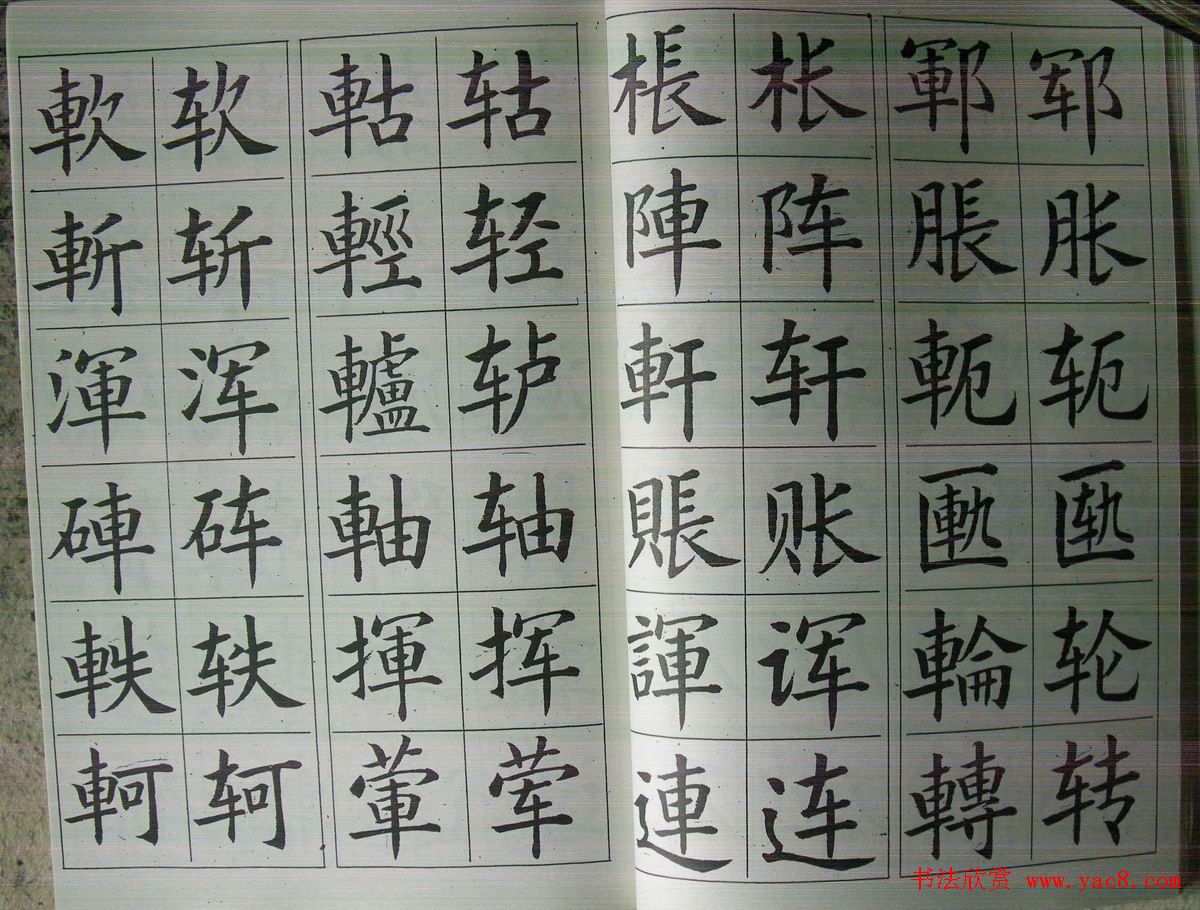 軟 软 軲 轱 棖 枨 鄆 郓
斬 斩 輕 轻 陣 阵 脹 胀
渾 浑 轤 轳 軒 轩 軛 轭
硨 砗 軸 轴 賬 账 匭 匦
軼 轶 揮 挥 諢 诨 輪 轮
軻 轲 葷 荤 連 连 轉 转
书法欣赏 www.yac8.com